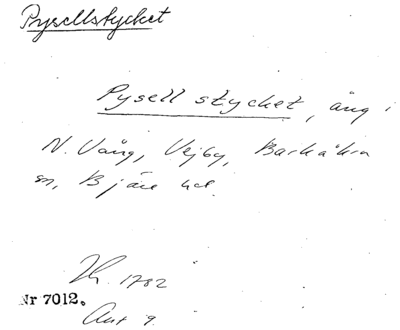 Pysellstycket
Pysell stycket, äng i
N. Vång, Vejby, Barkåkra
sn, Bjäre hd.
1782
Nr 7012.
Akt 9.